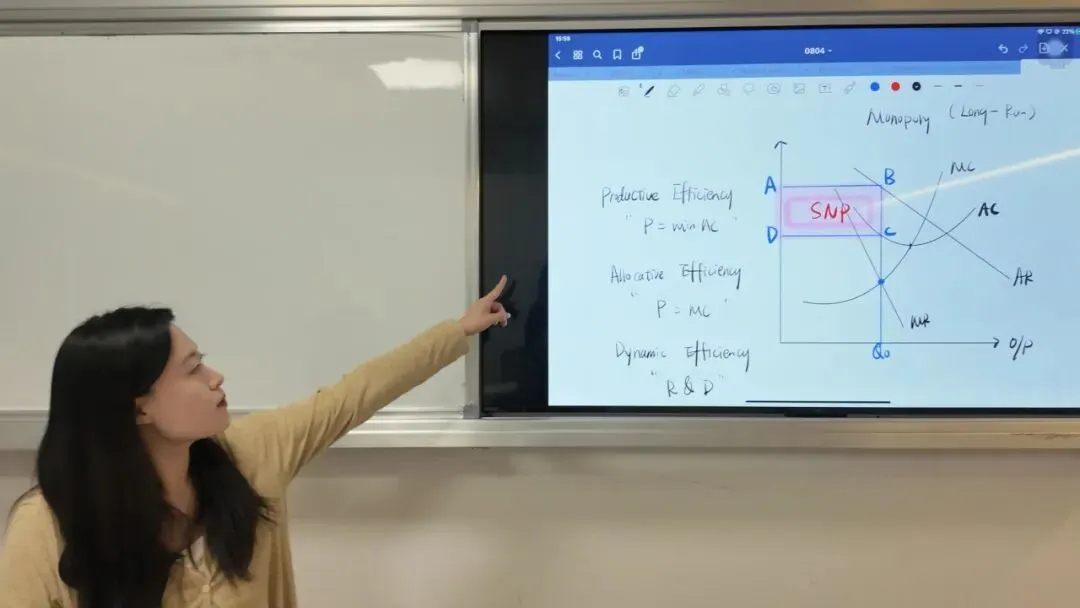 15:56
22%
0804
Monopory (Long-Run)
Productive Efficiency
" P = min AC "
Allocative Efficiency
" P = MC "
Dynamic Efficiency
" R & D "
A
B
MC
SNP
AC
D
C
AR
MR
Q₀
O/P